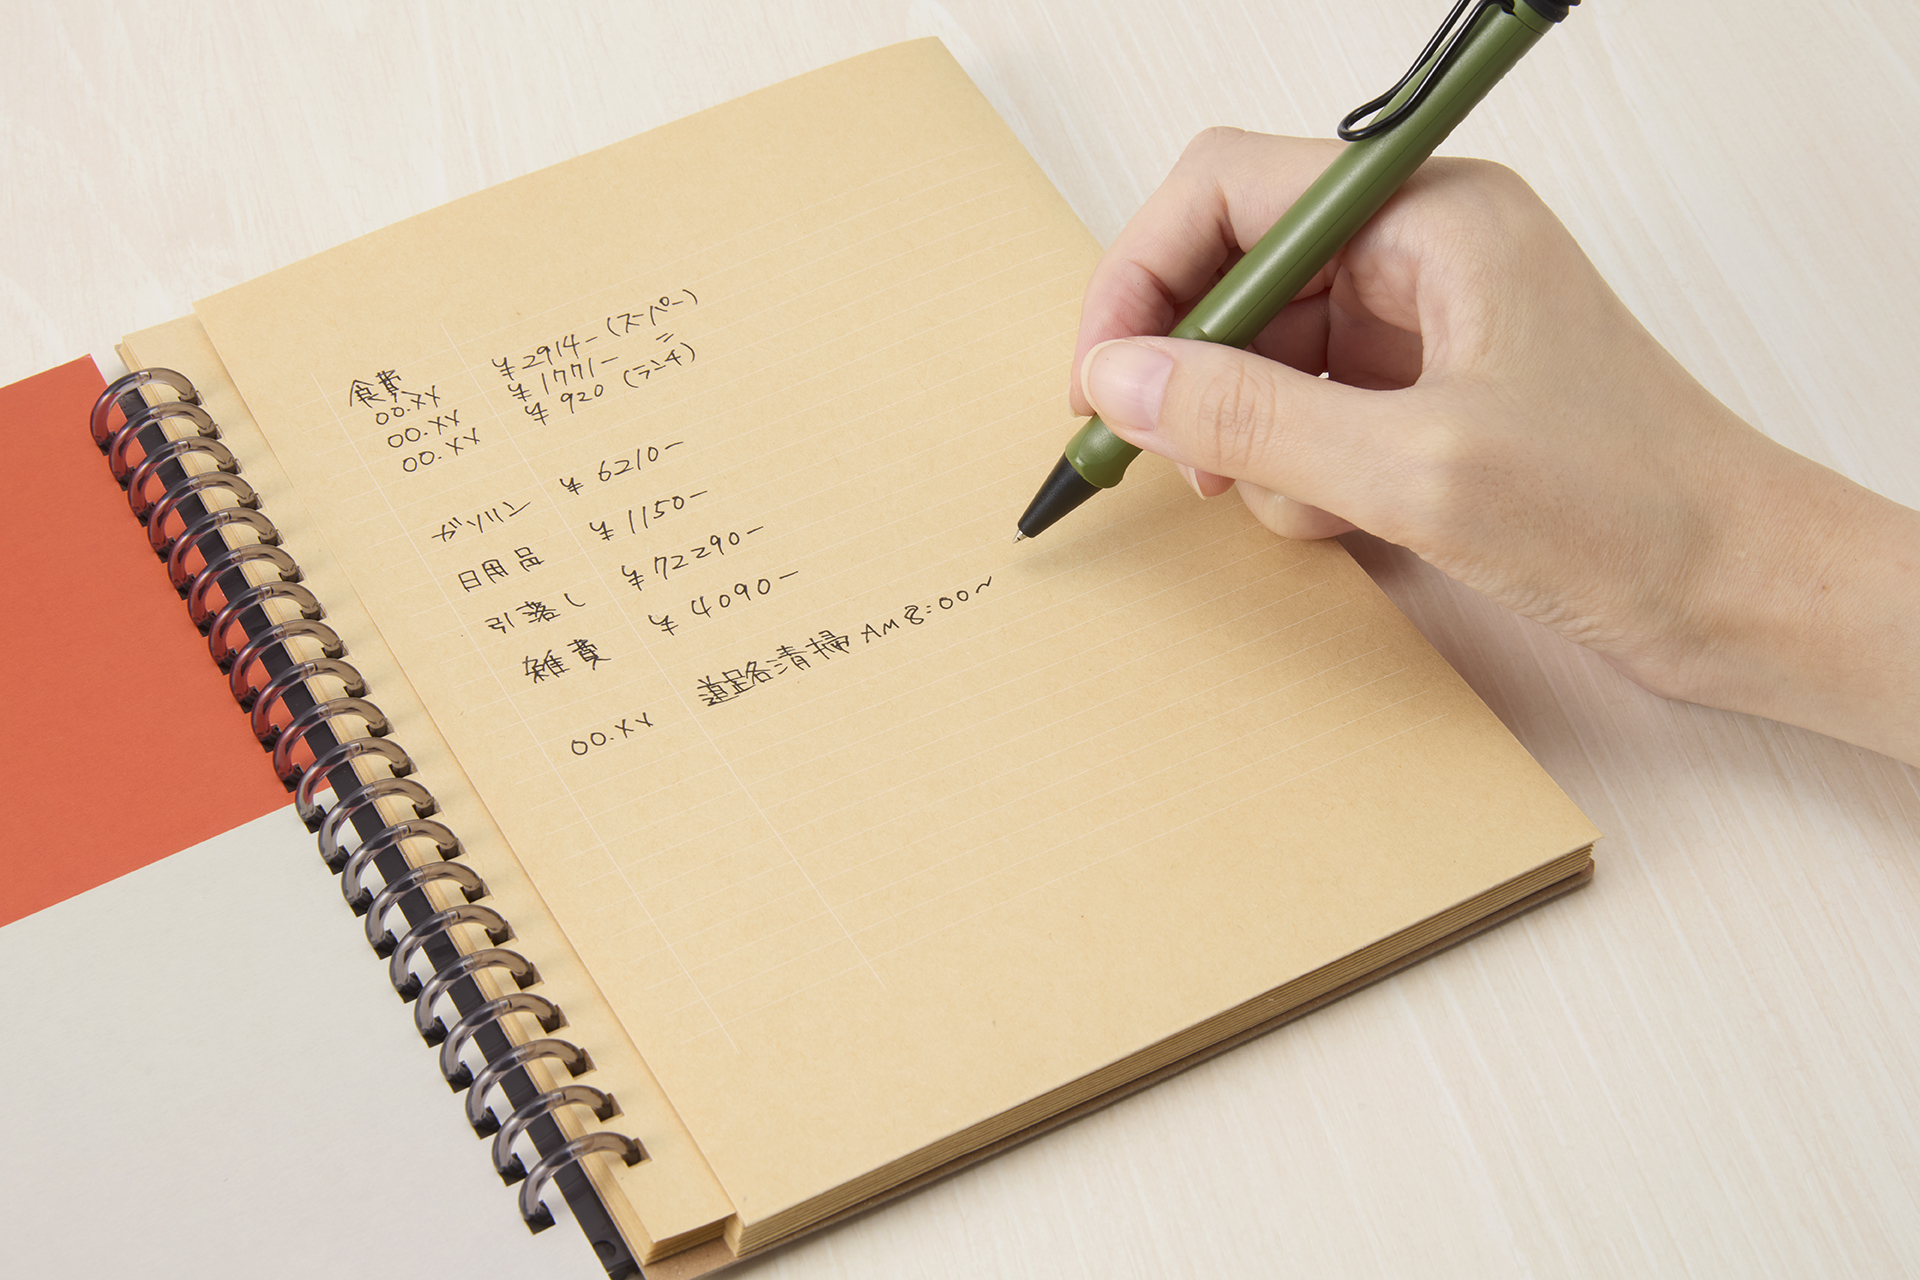 食費
00.XX ¥2914-(スーパー)
00.XX ¥1771- 〃
00.XX ¥920 (ランチ)
ガソリン ¥6210-
日用品 ¥1150-
引落し ¥72290-
雑費 ¥4090-
00.XX 道路清掃 AM8:00~